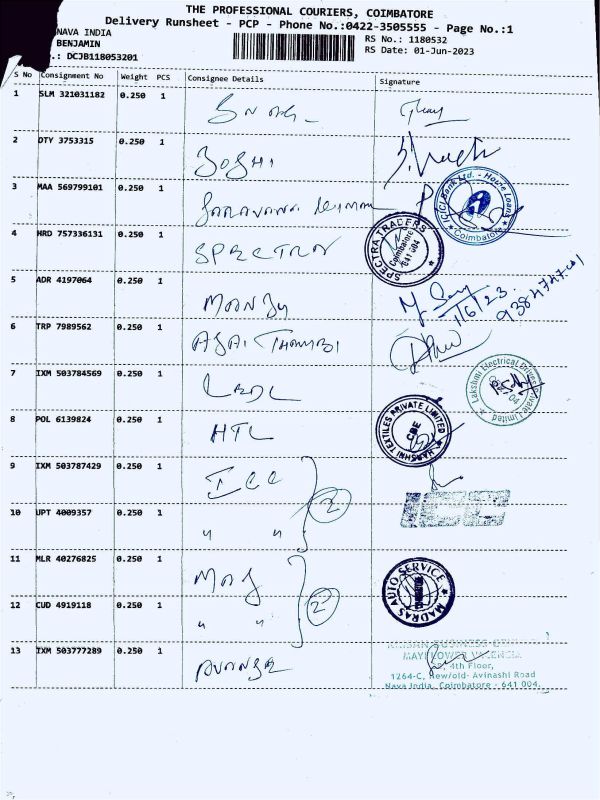 THE PROFESSIONAL COURIERS, COIMBATORE
Delivery Runsheet - PCP - Phone No.:0422-3505555 - Page No.:1
NAVA INDIA
BENJAMIN
.: DCJB118053201
RS No.: 1180532
RS Date: 01-Jun-2023
S No Consignment No Weight PCS Consignee Details Signature
1 SLM 321031182 0.250 1
2 DTY 3753315 0.250 1 JOSHI
3 MAA 569799101 0.250 1 SARAVANA KUMAR
ICICI Bank Ltd. - Home Loans
Coimbatore
4 HRD 757336131 0.250 1 SPECTRA
SPECTRA TRADERS
Coimbatore
641 004
5 ADR 4197064 0.250 1 MANJU
1/6/23
6 TRP 7989562 0.250 1 AJAI THAMBI
7 IXM 503784569 0.250 1 LEDL
Lakshmi Electrical Drives Private Limited
8 POL 6139824 0.250 1 HTL
HARSHNI TEXTILES PRIVATE LIMITED
CBE
9 IXM 503787429 0.250 1 ICC
2
10 UPT 4009357 0.250 1 " "
11 MLR 40276825 0.250 1 MAS
2
MADRAS AUTO SERVICE
COIMBATORE
12 CUD 4919118 0.250 1 " "
13 IXM 503777289 0.250 1
MAYFLOWER VALENCIA
4th Floor,
1264-C, New/old- Avinashi Road
Nava India, Coimbatore - 641 004.